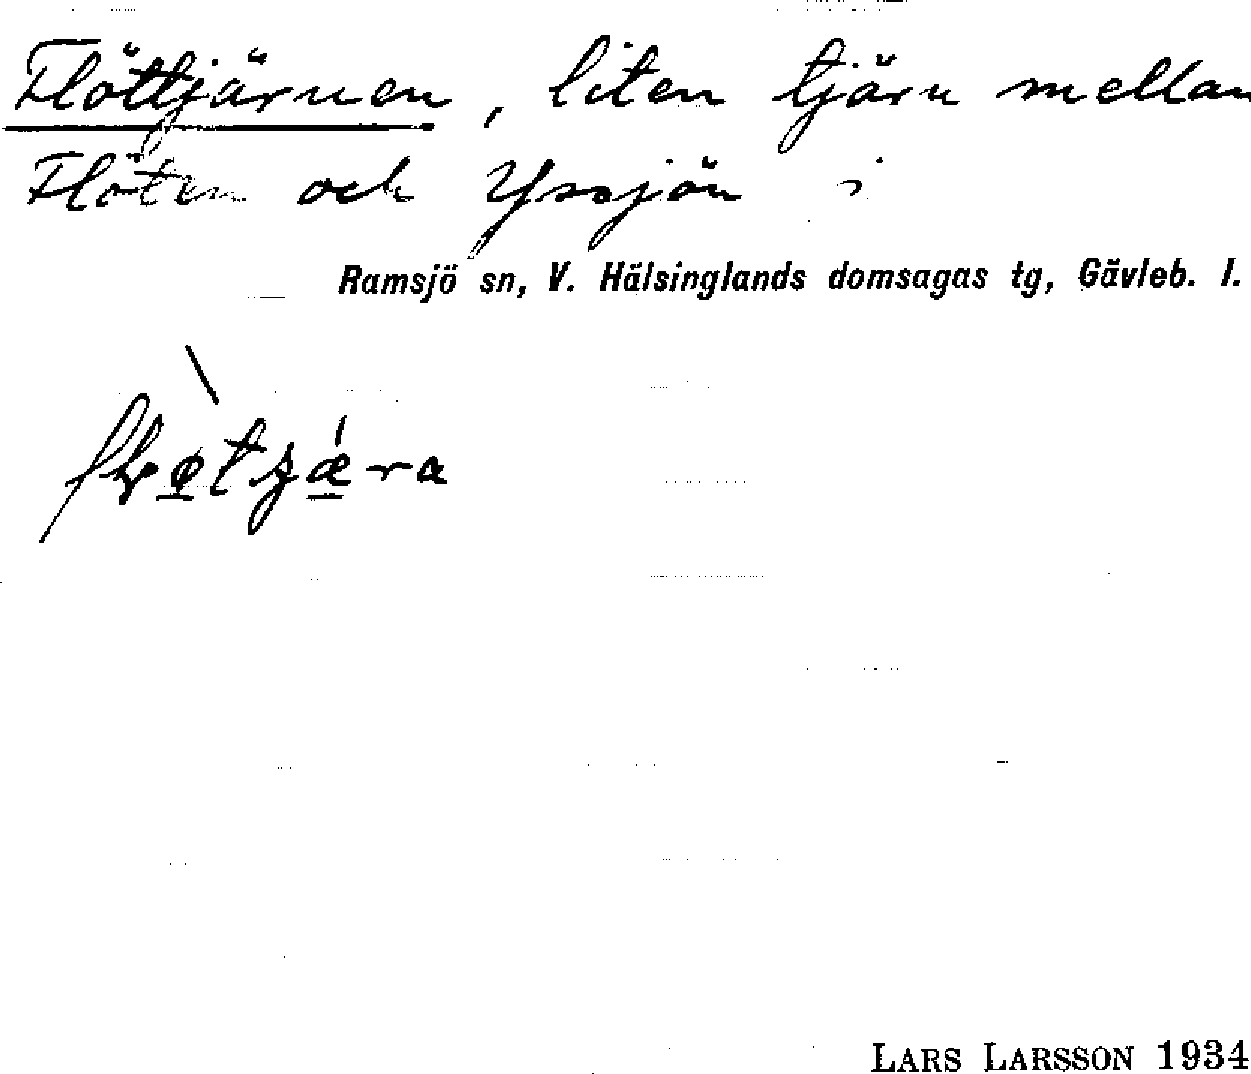 Flöttjärnen, liten tjärn mellan
Flöten och Yssjön i
Ramsjö sn, V. Hälsinglands domsagas tg, Gävleb. l.
LARS LARSSON 1934